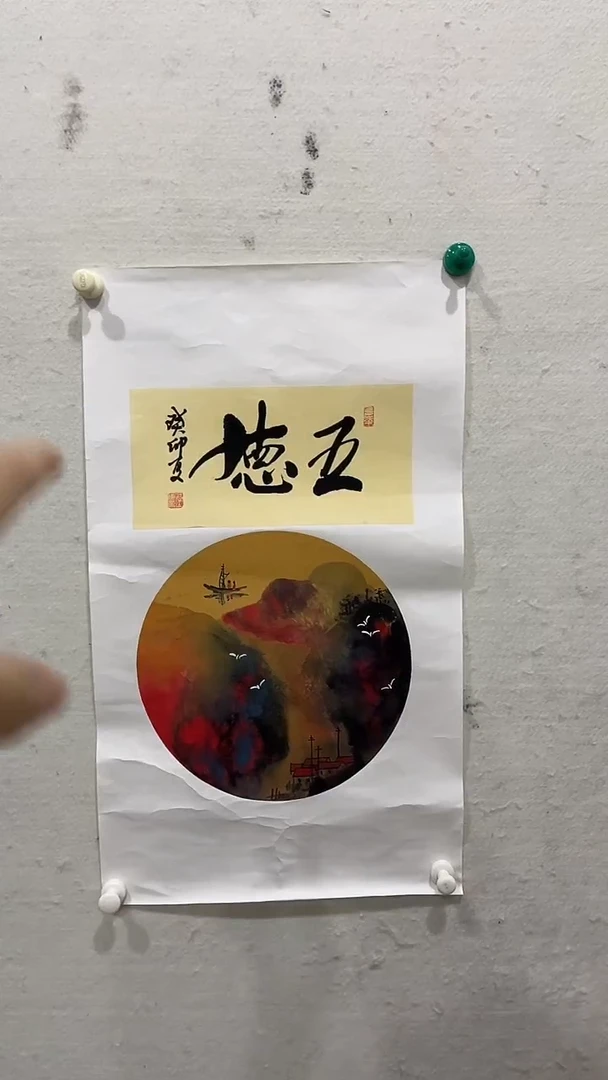 五德
癸卯夏